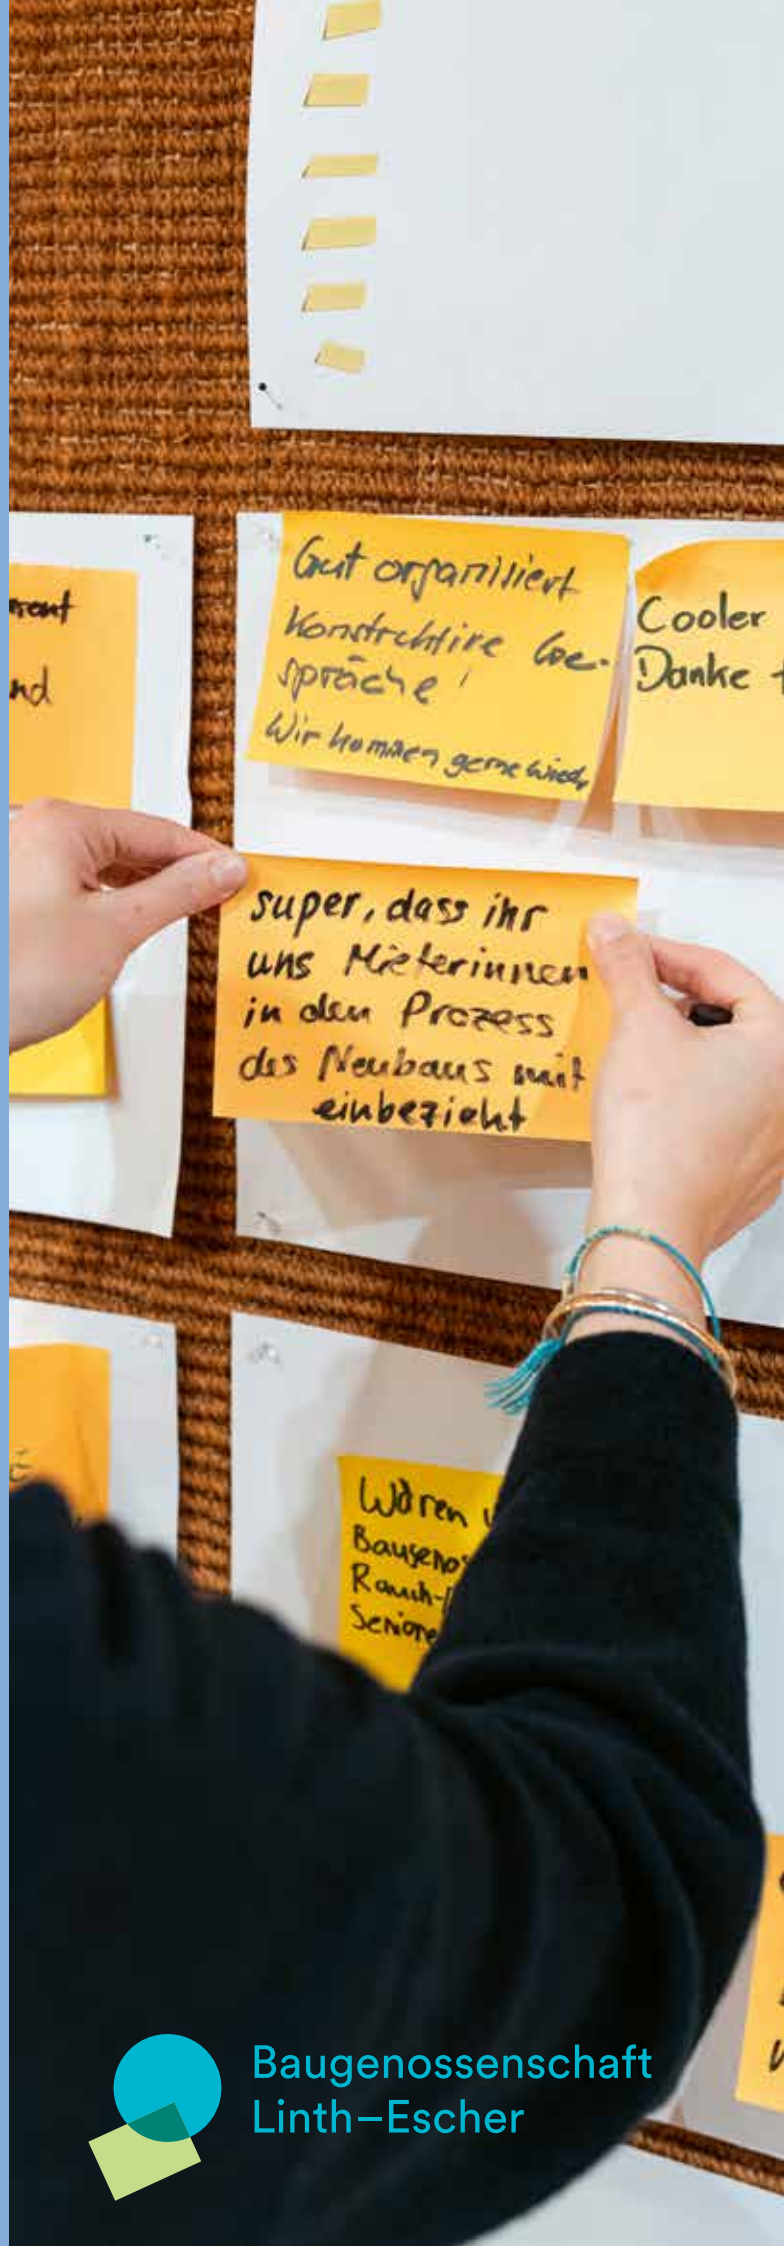 Gut organisiert
Konstruktive Ge-
spräche!
Wir kommen gerne wieder
Cooler
Danke
super, dass ihr
uns Mieterinnen
in den Prozess
des Neubaus mit
einbezieht
nd
Wären
Baugenos
Rauch-
Seniore
Baugenossenschaft
Linth–Escher